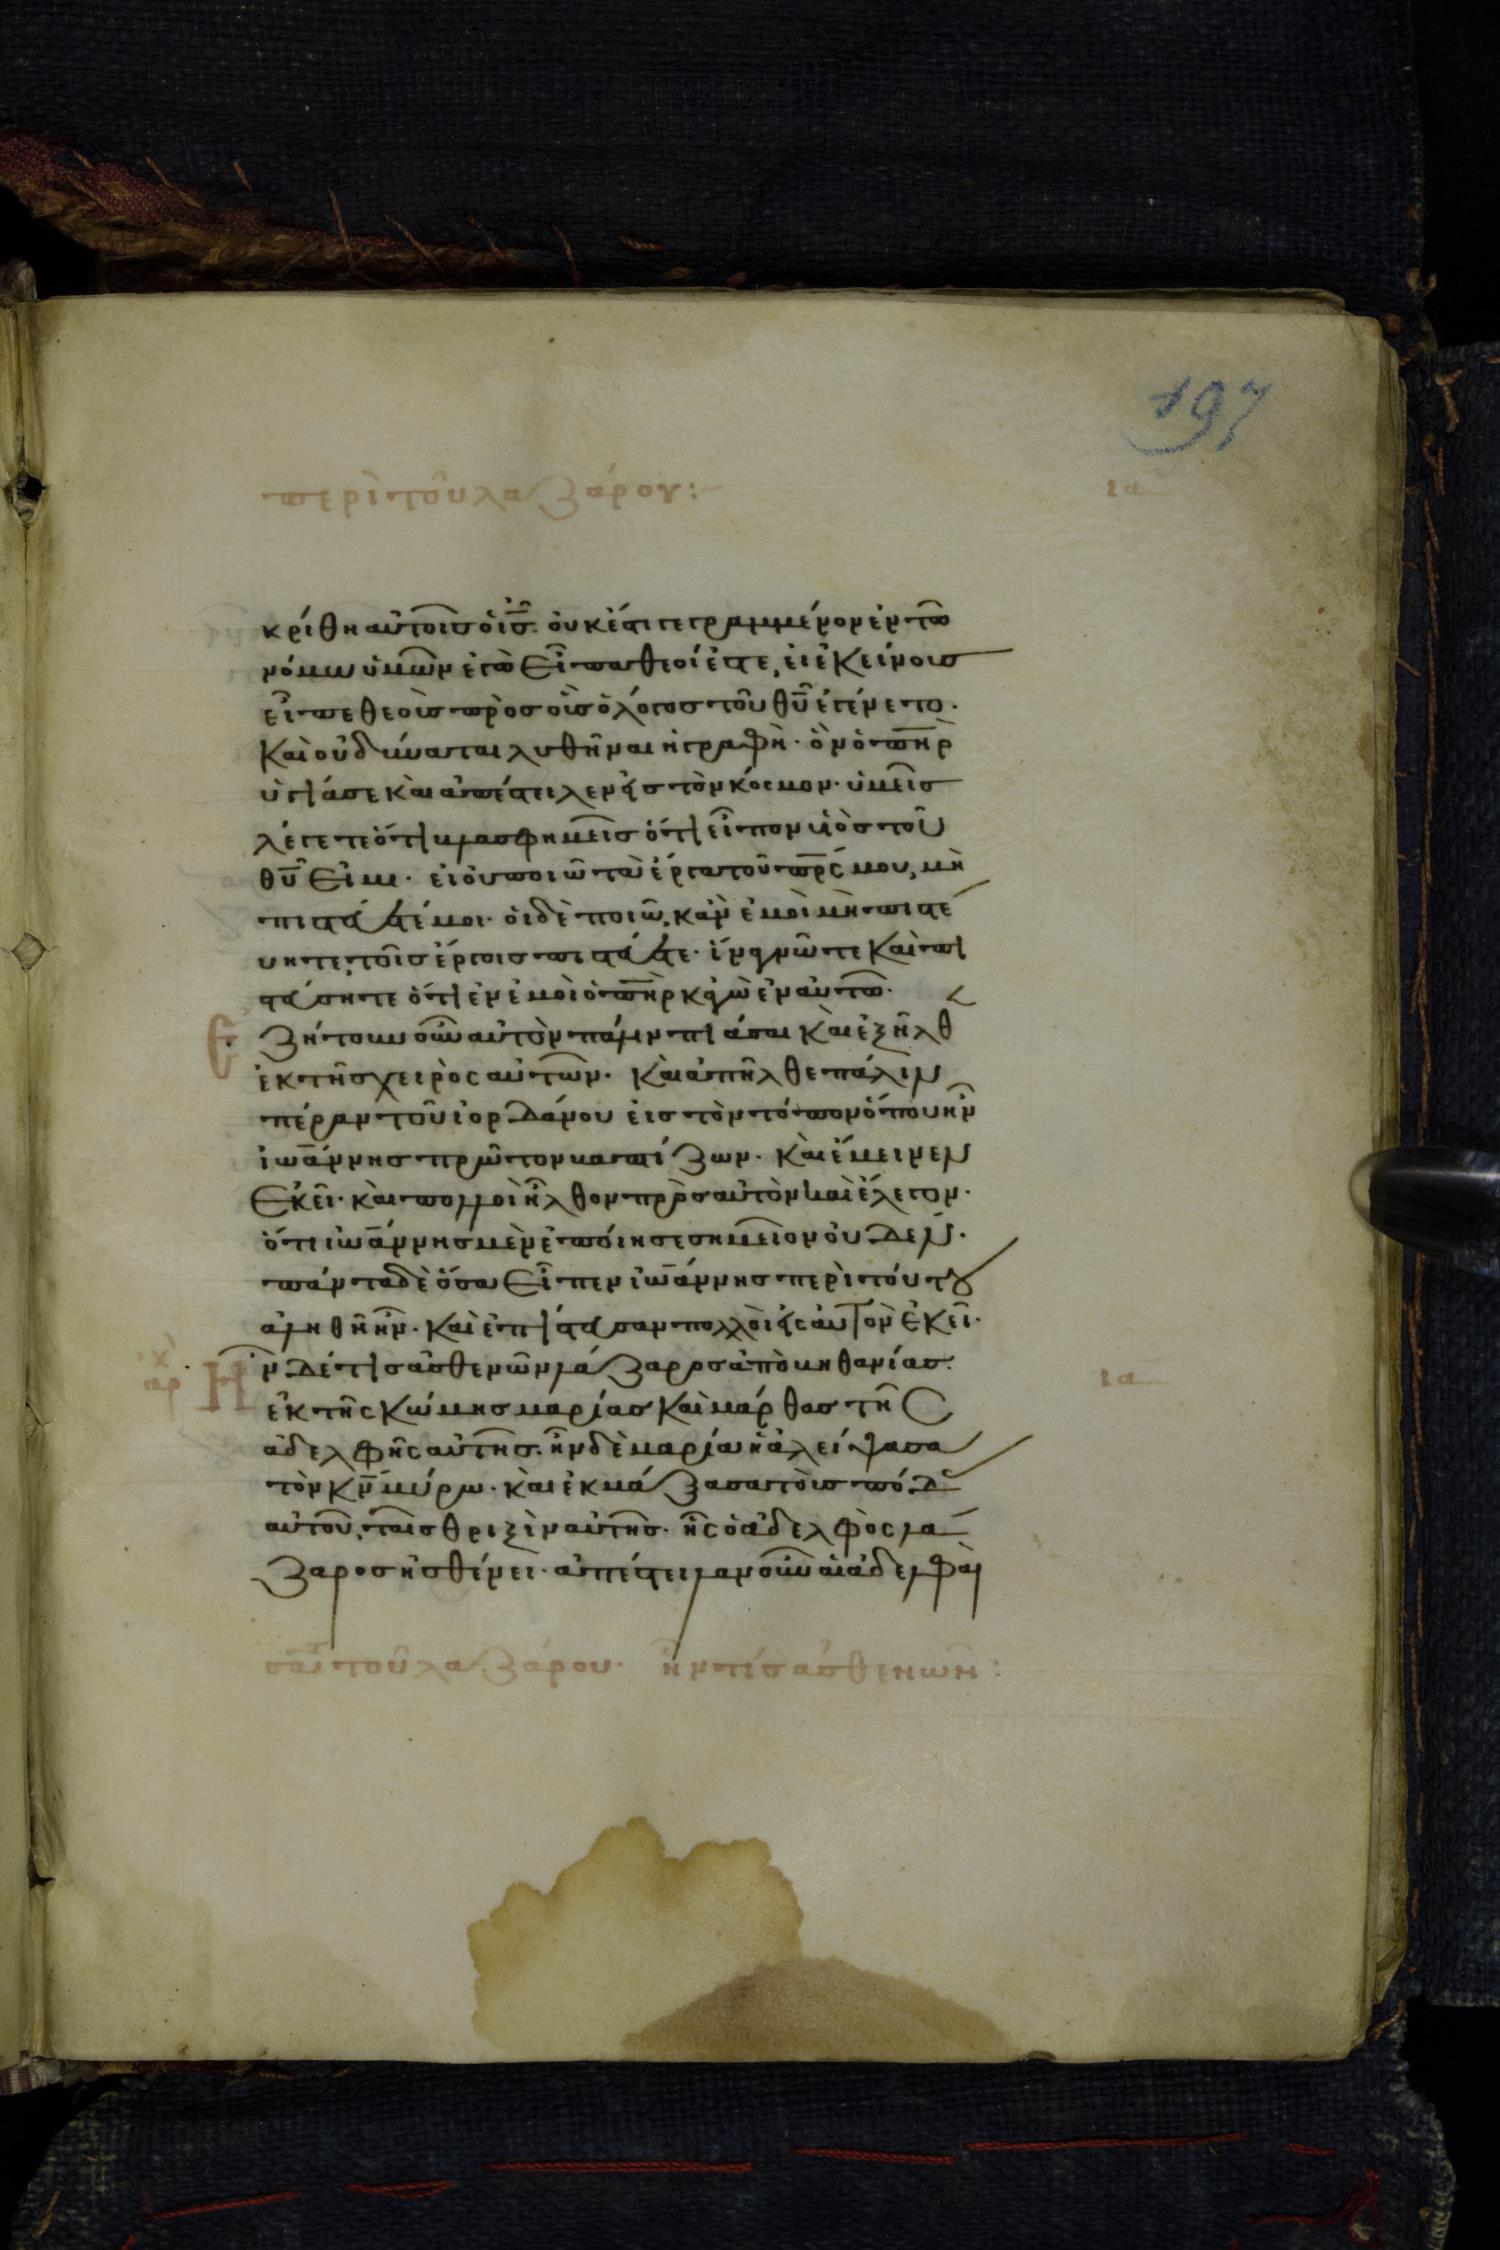 197
περὶ τοῦ λαζάρου:
ια
κρίθη αὐτοῖσ ὁ ἰ̅σ̅. οὐκ ἔστι γεγραμμένον ἐν τῶ
νόμω ὑμῶν ἐγὼ εἶπα θεοί ἐστε, εἰ ἐκείνοισ
εἶπε θεοὺσ πρὸσ οὓσ ὁ λόγοσ τοῦ θ̅υ̅ ἐγένετο.
καὶ οὐ δύναται λυθῆναι ἡ γραφὴ. ὃν ὁ π̅η̅ρ̅
ἡγίασε καὶ ἀπέστειλεν εἰσ τὸν κόσμον. ὑμεῖσ
λέγετε ὅτι βλασφημεῖσ ὅτι εἶπον υἱὸσ τοῦ
θ̅υ̅ εἰμι. εἰ οὐ ποιῶ τὰ ἔργα τοῦ π̅ρ̅ς̅ μου, μὴ
πιστεύετέ μοι. εἰ δὲ ποιῶ, κἂν ἐμοὶ μὴ πιστεύ
υητε, τοῖσ ἔργοισ πιστεύετε. ἵνα γνῶτε καὶ πι
στεύσητε ὅτι ἐν ἐμοὶ ὁ π̅η̅ρ̅ κἀγὼ ἐν αὐτῶ.
Ἐζήτουν οὖν αὐτὸν πάλιν πιάσαι καὶ ἐξῆλθ
ἐκ τῆσ χειρὸς αὐτῶν. καὶ ἀπῆλθε πάλιν
πέραν τοῦ ἰορδάνου εἰσ τὸν τόπον ὅπου ἦν
ἰωάννησ πρῶτον βαπτίζων. καὶ ἔμεινεν
ἐκεῖ. καὶ πολλοὶ ἦλθον πρὸσ αὐτὸν καὶ ἔλεγον.
ὅτι ἰωάννησ μὲν ἐποίησε σημεῖον οὐδέν.
πάντα δὲ ὅσα εἶπεν ἰωάννησ περὶ τούτου
ἀληθῆ ἦν. καὶ ἐπίστευσαν πολλοὶ εἰς αὐτὸν ἐκεῖ.
ἀρχ
Ἦν δέ τισ ἀσθενῶν λάζαροσ ἀπὸ βηθανίασ.
ια
ἐκ τῆς κώμησ μαρίασ καὶ μάρθασ τῆς
ἀδελφῆς αὐτῆσ. ἦν δὲ μαρία ἡ ἀλείψασα
τὸν κ̅ν̅ μύρω. καὶ ἐκμάξασα τοὺσ πόδ
αὐτοῦ, ταῖσ θριξὶν αὐτῆσ. ἧς ὁ ἀδελφὸς λά
ζαροσ ἠσθένει. ἀπέστειλαν οὖν αἱ ἀδελφαὶ
σα τοῦ λαζάρου. ἦν τίσ ἀσθενῶν: